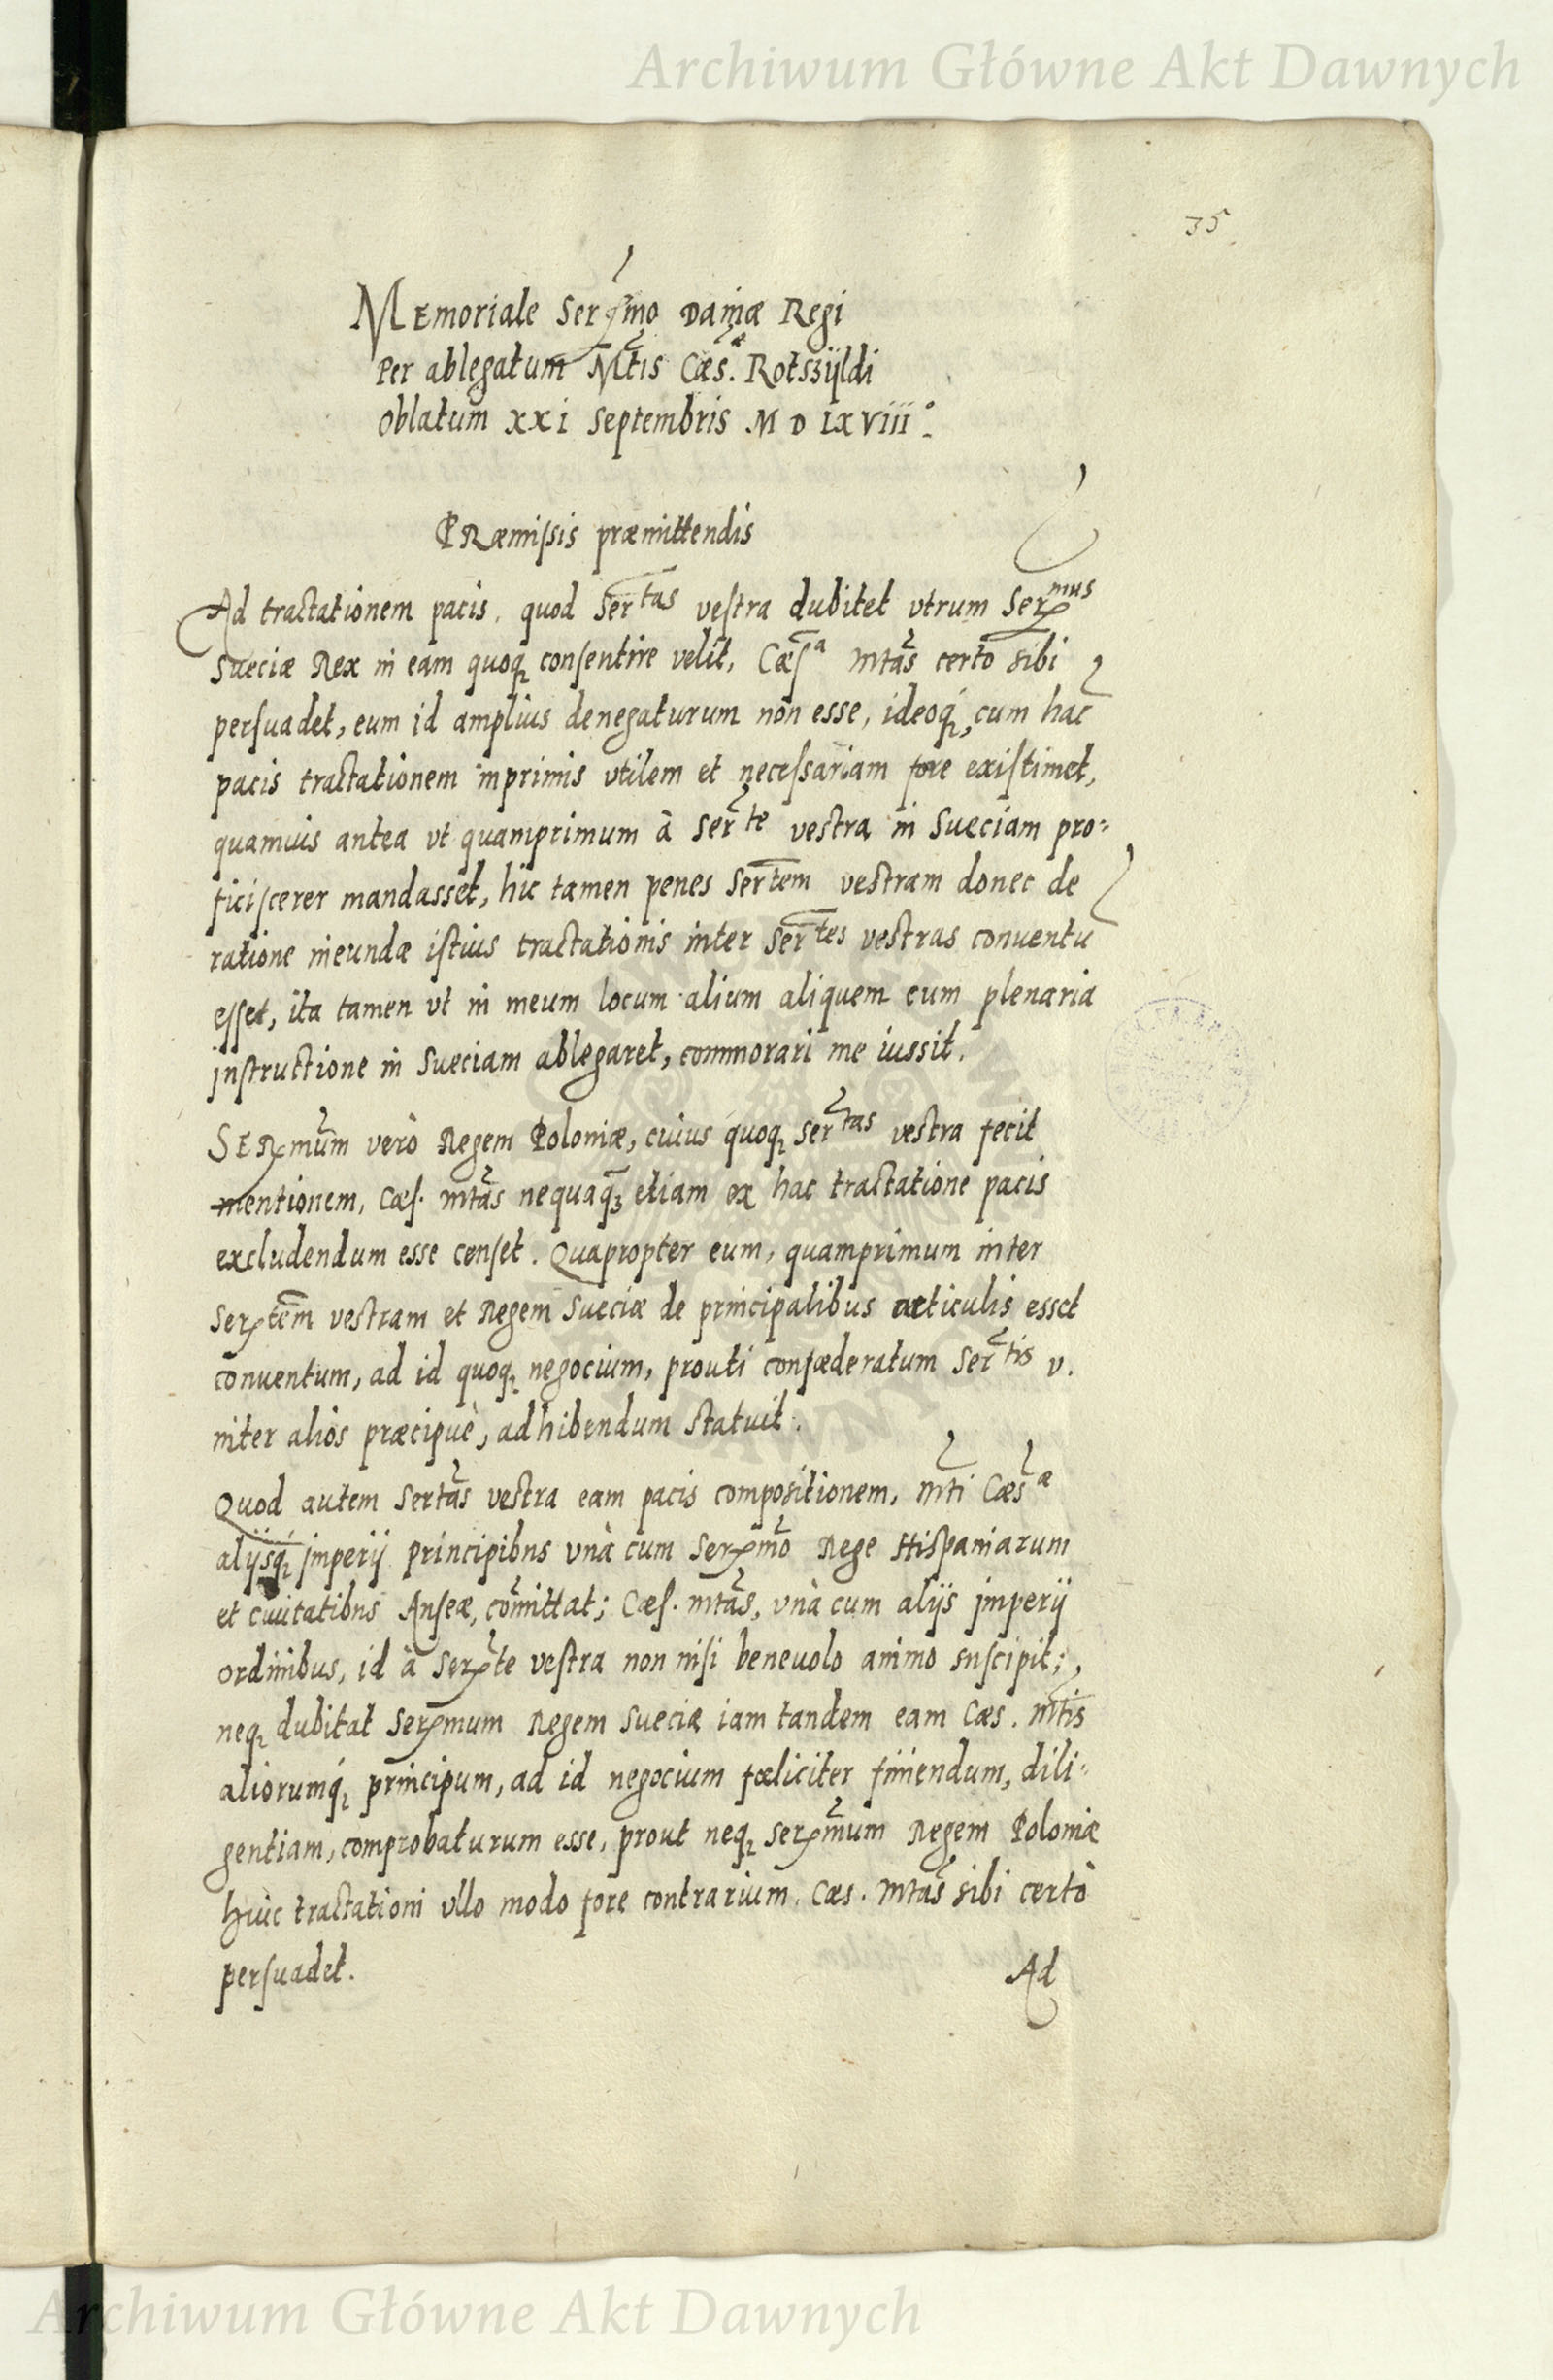 Archiwum Główne Akt Dawnych
35.
Memoriale Ser:mo Daniæ Regi
Per ablegatum Mtis Cæs.æ Rotszÿldi
oblatum xxi Septembris M D LXVIII°.
Præmissis præmittendis
Ad tractationem pacis, quod Sertas vestra dubitet vtrum Sermus
Sueciæ Rex in eam quoq; consentire velit, Cæsa Mtas certo sibi
persuadet, eum id amplius denegaturum non esse, ideoq;, cum hac
pacis tractationem inprimis vtilem et necessariam fore existimet,
quamuis antea vt quamprimum à Serte vestra in Sueciam pro-
ficiscerer mandasset, hic tamen penes Sertem vestram donec de
ratione ineundæ istius tractationis inter Sertes vestras conventū
esset, ita tamen vt in meum locum alium aliquem cum plenaria
jnstructione in Sueciam ablegaret, commorari me iussit.
Sermum verò Regem Poloniæ, cuius quoq; Sertas vestra fecit
mentionem, Cæs. Mtas nequaq̃3 etiam ex hac tractatione pacis
excludendum esse censet. Quapropter eum, quamprimum inter
Sertem vestram et Regem Sueciæ de principalibus articulis esset
conuentum, ad id quoq; negocium, prouti confœderatum Sertis v.
inter alios præcipuè, adhibendum statuit.
Quod autem Sertas vestra eam pacis compositionem, Mti Cæsæ
alijsq; jmperij principibus vnà cum Sermo Rege Hispaniarum
et ciuitatibus Anseæ, cõmittat; Cæs. Mtas, vnà cum alijs jmperij
ordinibus, id à Serte vestra non nisi beneuolo animo suscipit;
neq; dubitat Sermum Regem Sueciæ iam tandem eam Cæs. Mtis
aliorumq; principum, ad id negocium fœliciter finiendum, dili-
gentiam, comprobaturum esse, prout neq; Sermum Regem Poloniæ
huic tractationi vllo modo fore contrarium, Cæs. Mtas sibi certò
persuadet.
Ad
Archiwum Główne Akt Dawnych